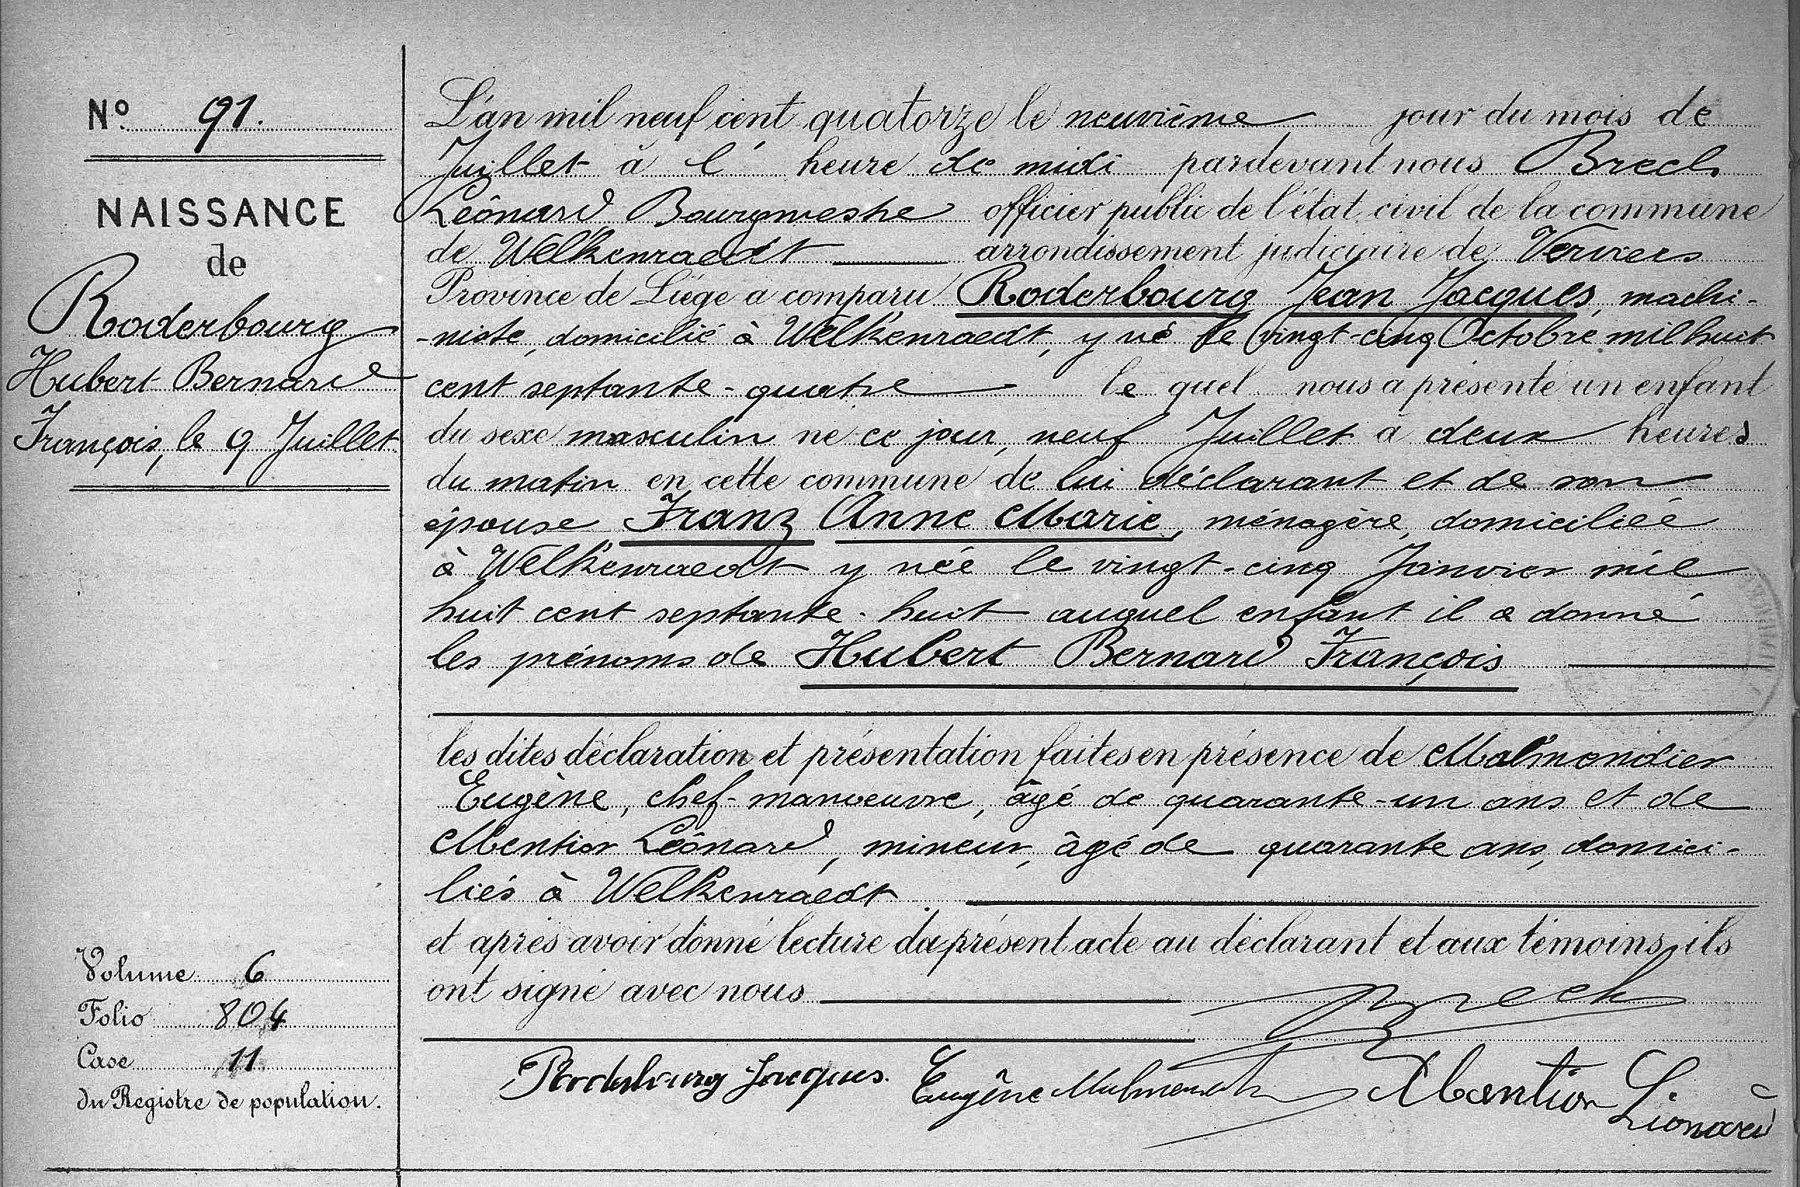 N° 91.
NAISSANCE
de
Roderbourg
Hubert Bernard
François, le 9 Juillet
L'an mil neuf cent quatorze le neuvième jour du mois de
Juillet à l' heure de midi pardevant nous Brech
Léonard Bourgmestre officier public de l'état civil de la commune
de Welkenraedt arrondissement judiciaire de Verviers
Province de Liége a comparu Roderbourg Jean Jacques, machi-
-niste, domicilié à Welkenraedt, y né le vingt-cinq Octobre mil huit
cent septante-quatre le quel nous a présenté un enfant
du sexe masculin né ce jour, neuf Juillet à deux heures
du matin en cette commune de lui déclarant et de son
épouse Franz Anne Marie, ménagère, domiciliée
à Welkenraedt y née le vingt-cinq Janvier mil
huit cent septante-huit auquel enfant il a donné
les prénoms de Hubert Bernard François
les dites déclaration et présentation faites en présence de Malmendier
Eugène, chef-manoeuvre, âgé de quarante-un ans et de
Mentior Léonard, mineur, âgé de quarante ans, domici-
liés à Welkenraedt.
et après avoir donné lecture du présent acte au déclarant et aux témoins, ils
ont signé avec nous
Brech
Roderbourg Jacques. Eugène Malmendier Mantior Lionard
Volume 6
Folio 804
Case 11
du Registre de population.